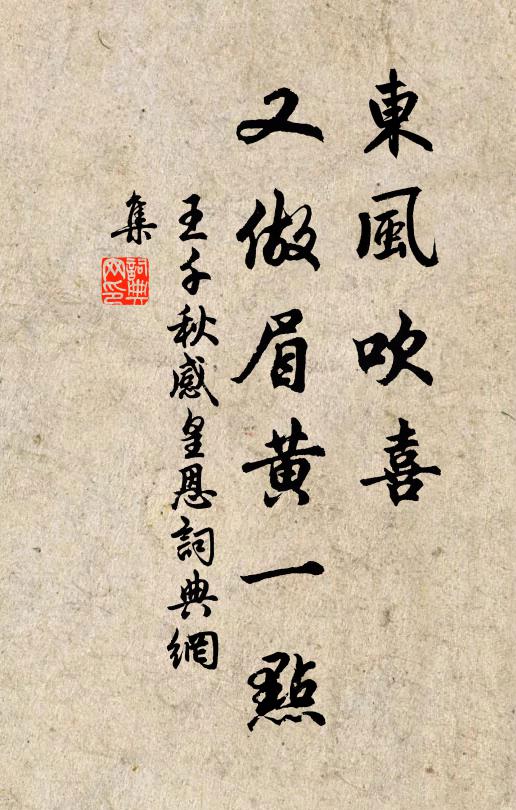 東風吹喜
又做眉黄一點
王千秋感皇恩詞典網
集
詞典
网印